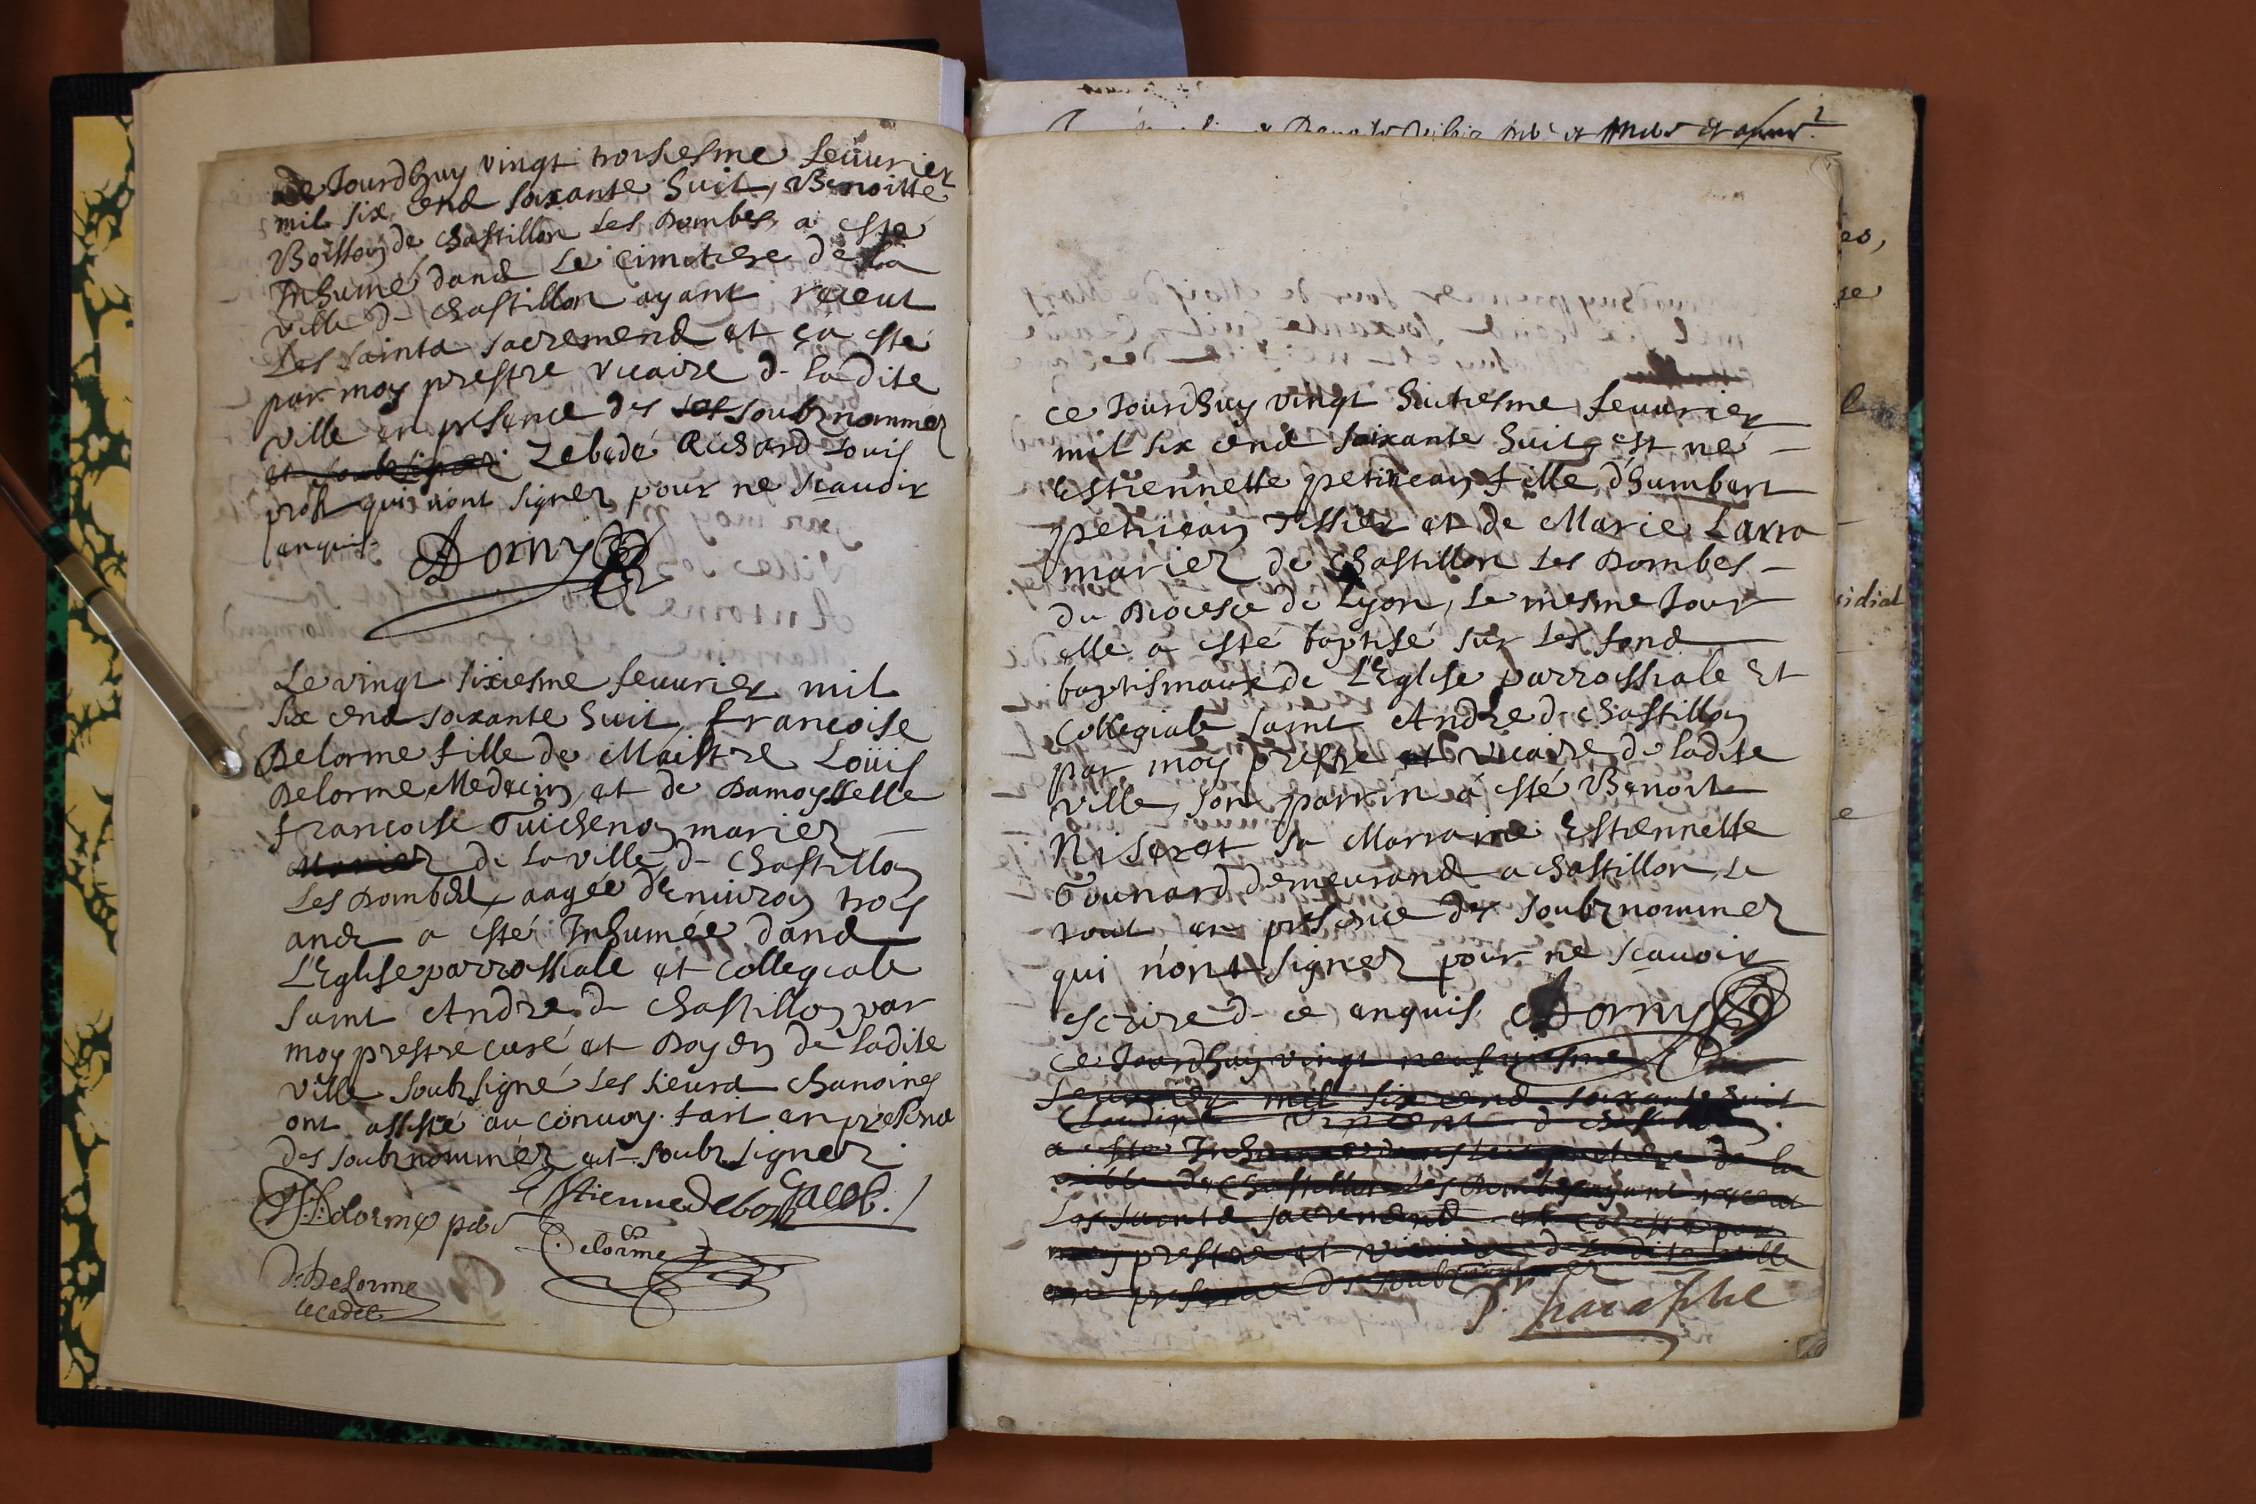 ce Jourdhuy vingt troisiesme feuurier
mil six cend soixante huit, Benoitte
Boisson de chastillon les Dombes a esté
Inhumé dans le cimetiere de la
ville de chastillon ayant receut
les saints sacremend et ça esté
par moy prestre vicaire de ladite
ville en presence des soubznommez
et soubsignez Zebedé Richard Louis
prost qui n'ont signez pour ne scauoir
enquis ADorny
Le vingt sixiesme feuurier mil
six cend soixante huit, francoise
Delorme fille de Maistre Loüis
Delorme Medecin, et de Damoysselle
francoise Guichenon mariez
Mariez de la ville de Chastillon
les Dombes, aagée d'enuiron trois
ans a esté Inhumée dans
L'Eglise parrossiale et Collegiale
saint Andre de Chastillon par
moy prestre curé et Doyen de ladite
ville soubsigné les sieurs chanoines
ont assisté au conuoy. fait en présence
des soubznommez et soubzsignez
Delorme pbr Estienne Jacob.
Delorme
D. Delorme
le cadet
ce Jourdhuy vingt huitiesme feuurier
mil six cend soixante huit, est né
Estiennette petitjean fille d'humbert
petitjean Tissier et de Marie Larra
mariez de Chastillon les Dombes
du Diocese de Lyon, le mesme Jour
elle a esté baptisé sur les fond
baptismaux de L'Eglise parrossiale Et
Collegiale saint Andre de chastillon
par moy prestre et vicaire de ladite
ville, son parrin a esté Benoit
Niseret sa Marraine Estiennette
Gounard demeurand a chastillon, le
tout en presence des soubznommez
qui n'ont signez pour ne scauoir
escrire de ce enquis. ADorny
ce Jourdhuy vingt neufuiesme
feuurier mil six cend soixante huit
Claudine Vincent de chastillon
a esté Inhumé dans le cimetiere de la
ville de Chastillon les Dombes ayant receut
les saints sacremend et ça esté par
moy prestre et vicaire de ladite ville
en presence des soubznommez
P. paraphe